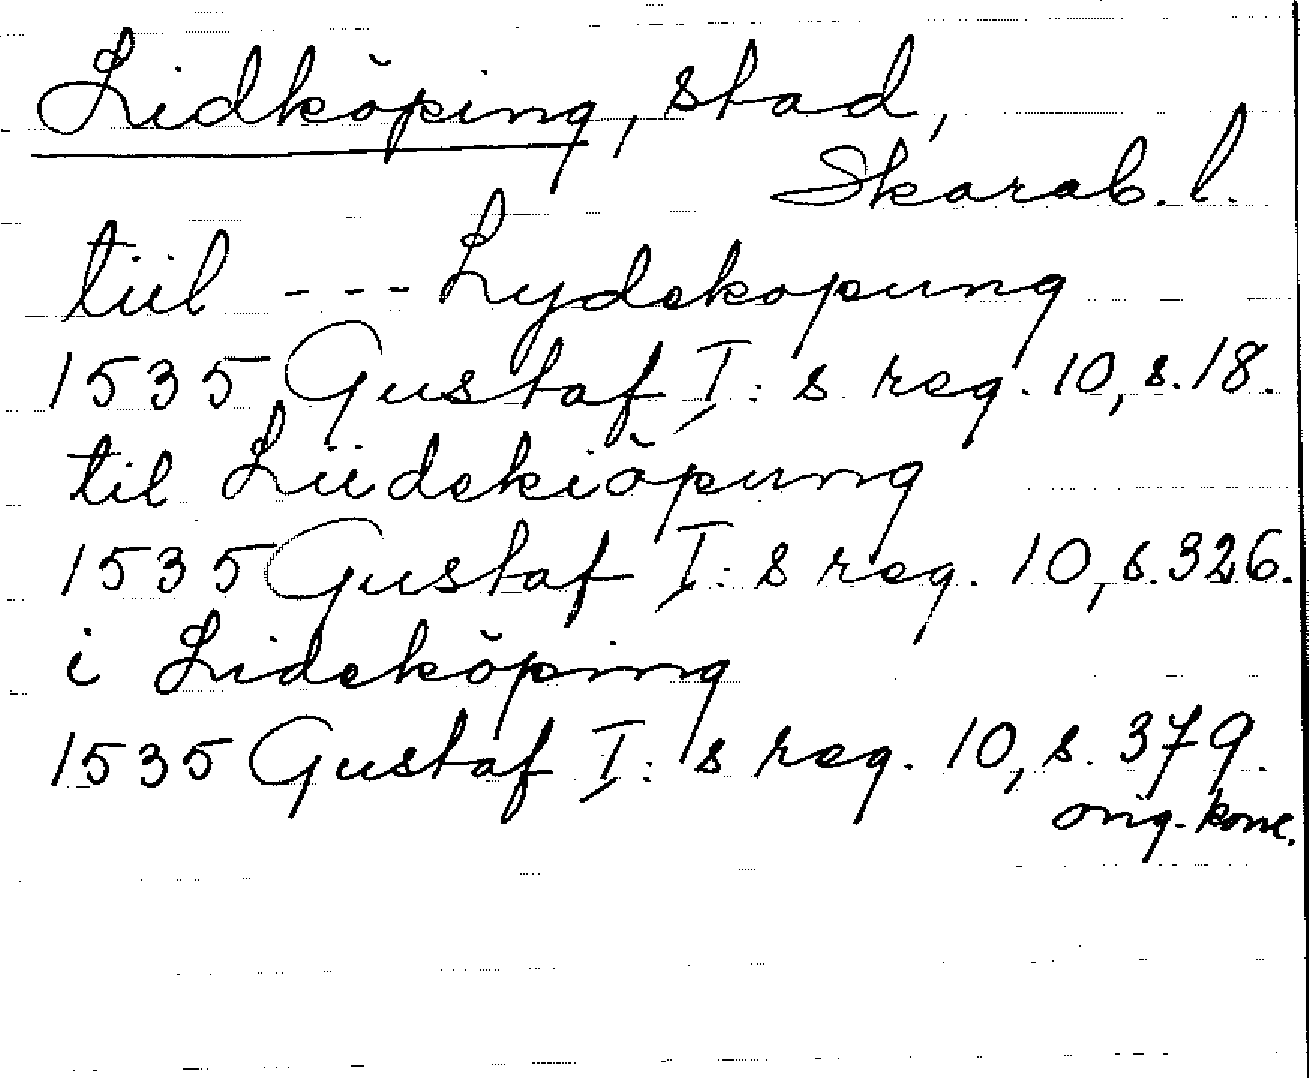 Lidköping, stad,
Skarab. l.
tiil --- Lydekopung
1535 Gustaf I: s reg. 10, s. 18.
til Lüdekiöpung
1535 Gustaf I: s reg. 10, s. 326.
i Lideköping
1535 Gustaf I: s reg. 10, s. 379.
orig. konc.